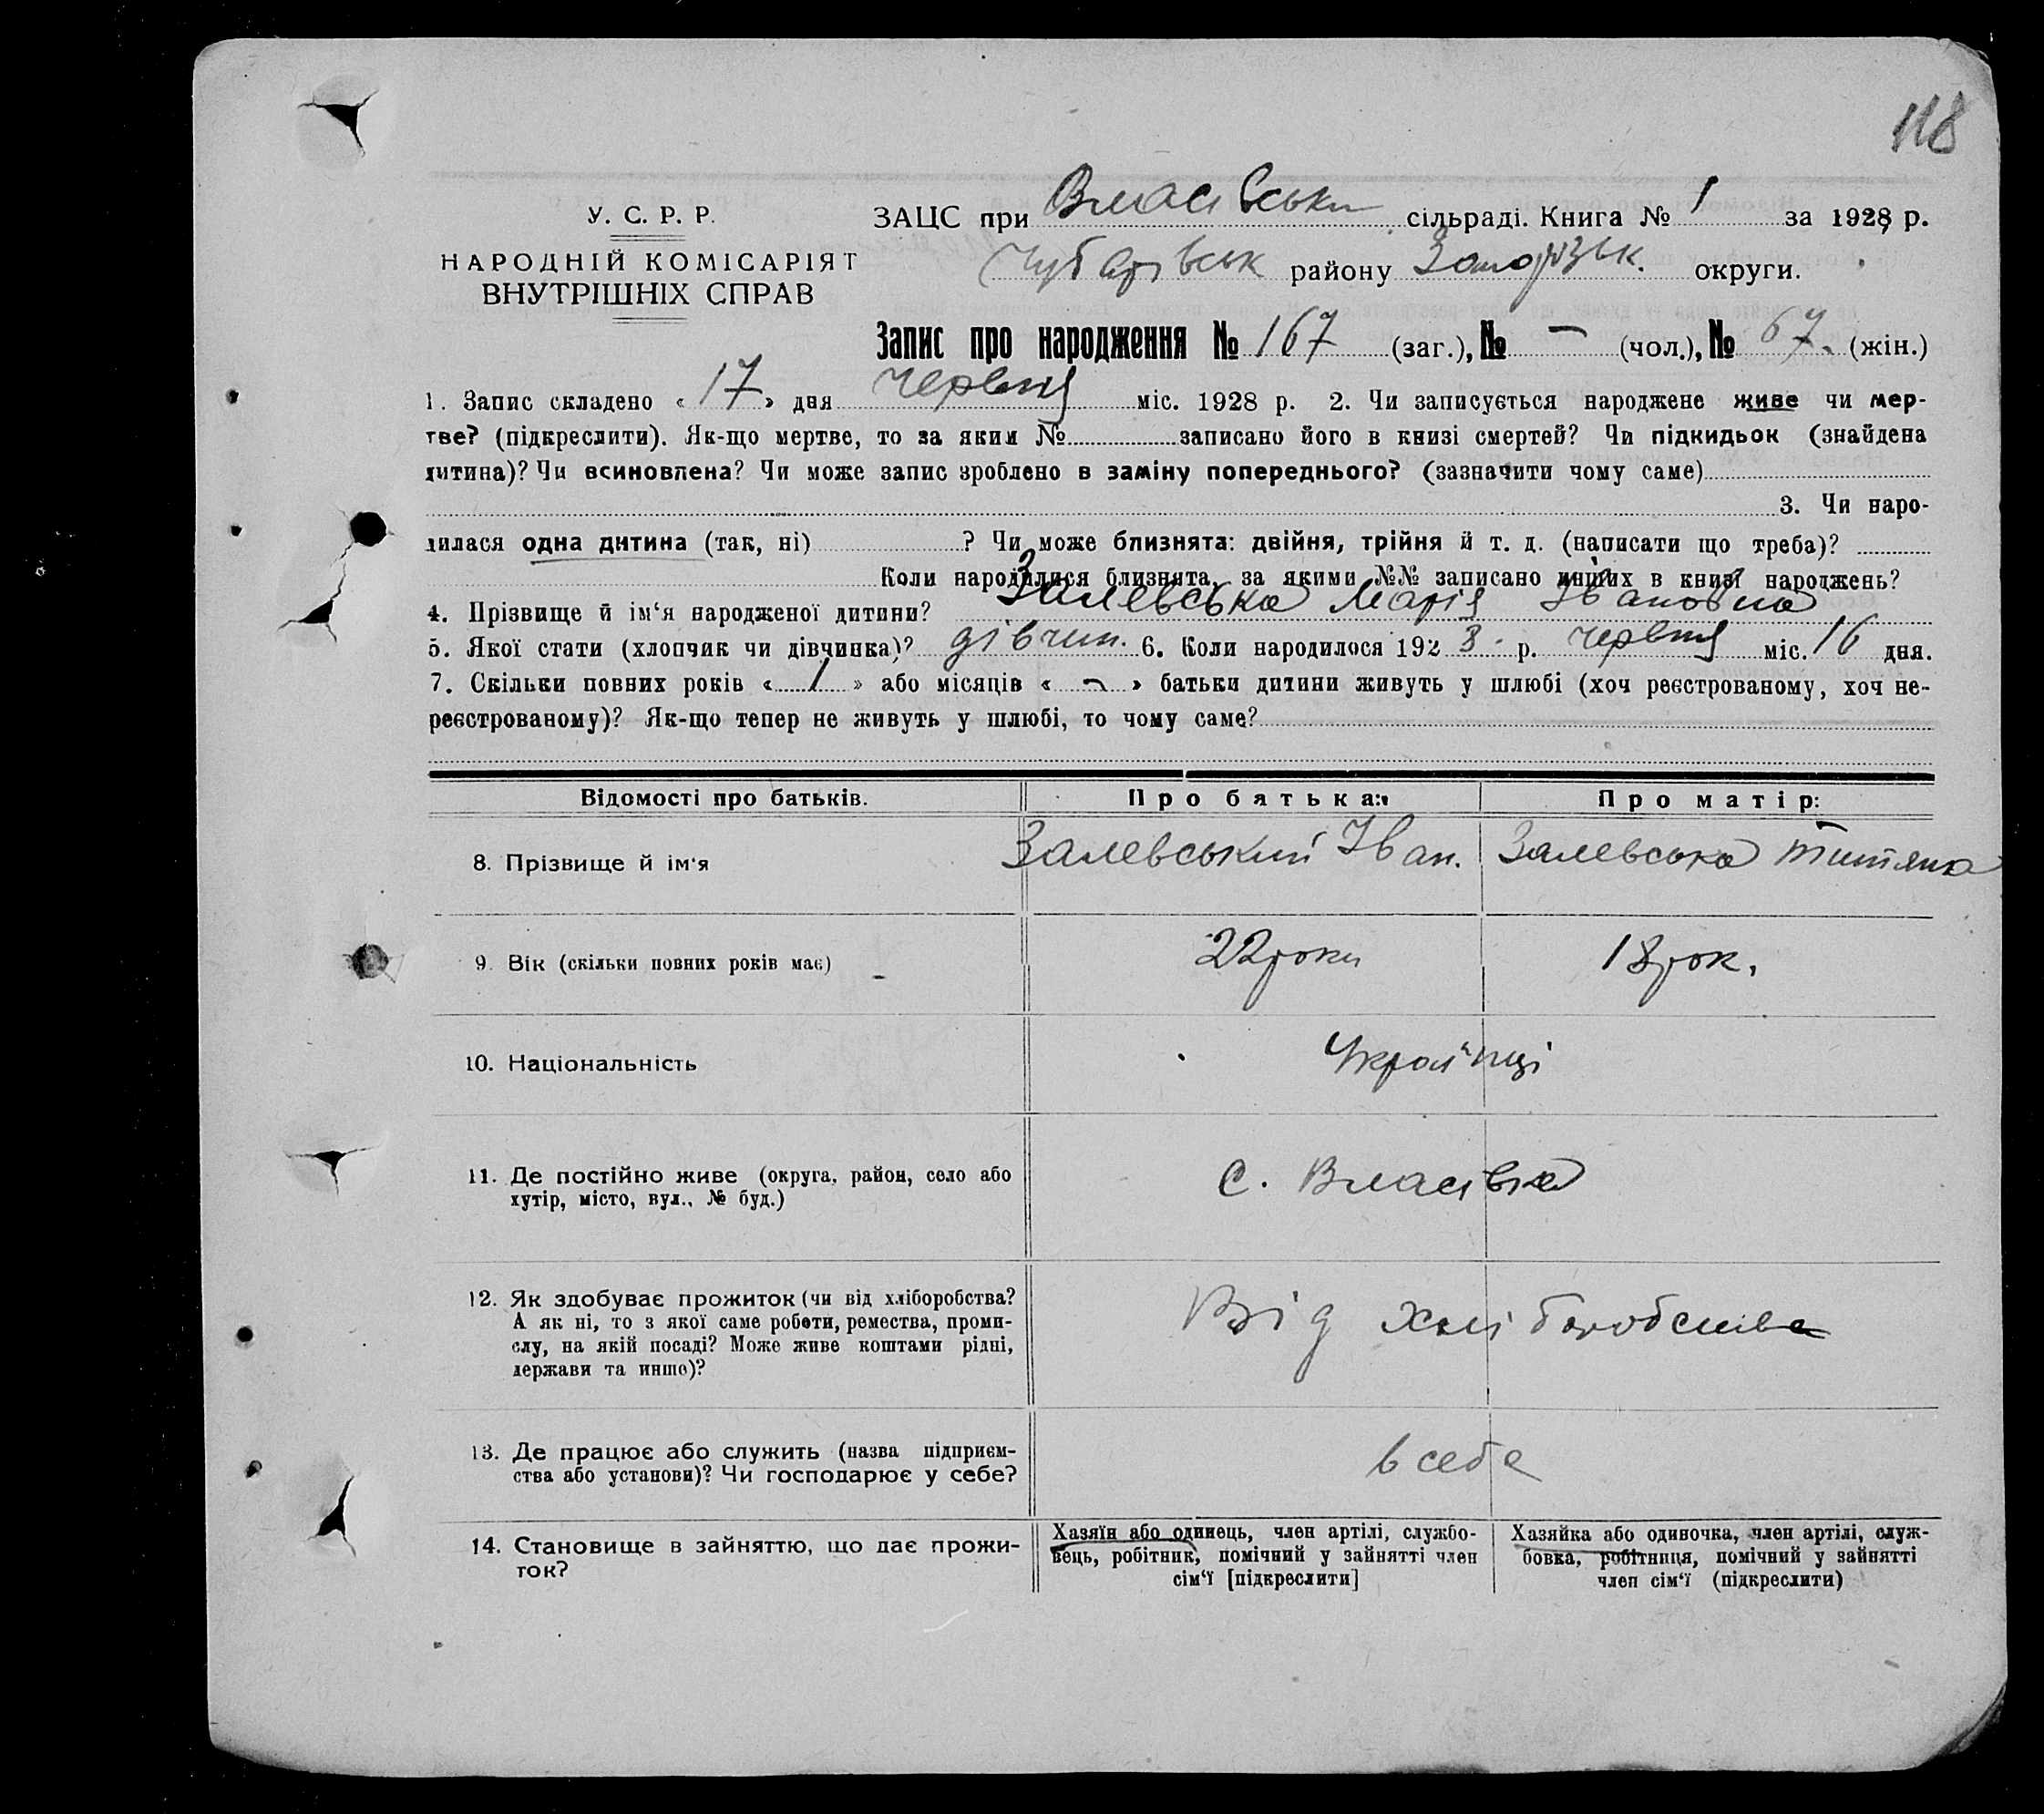 118
У. С. Р. Р.
НАРОДНІЙ КОМІСАРІЯТ
ВНУТРІШНІХ СПРАВ
ЗАЦС при Власівськи сільраді. Книга № 1 за 1928 р.
Чубарівськ району Запорізьк. округи.
Запис про народження № 167 (заг.), № — (чол.), № 67. (жін.)
1. Запис складено «17» дня червня міс. 1928 р. 2. Чи записується народжене живе чи мер-
тве? (підкреслити). Як-що мертве, то за яким № записано його в книзі смертей? Чи підкидьок (знайдена
дитина)? Чи всиновлена? Чи може запис зроблено в заміну попереднього? (зазначити чому саме)
3. Чи наро-
дилася одна дитина (так, ні) ? Чи може близнята: двійня, трійня й т. д. (написати що треба)?
Коли народилися близнята, за якими №№ записано инших в книзі народжень?
4. Прізвище й ім‘я народженої дитини? Залевська Марія Івановна
5. Якої стати (хлопчик чи дівчинка)? дівчин. 6. Коли народилося 1928 р. червня міс. 16 дня.
7. Скільки повних років «1» або місяців «—» батьки дитини живуть у шлюбі (хоч реєстрованому, хоч не-
реєстрованому)? Як-що тепер не живуть у шлюбі, то чому саме?
Відомості про батьків. Про батька: Про матір:
8. Прізвище й ім‘я Залевський Іван. Залевська Титяна
9. Вік (скільки повних років має) 22 роки 18 рок.
10. Національність Українці
11. Де постійно живе (округа, район, село або
хутір, місто, вул., № буд.) с. Власівка
12. Як здобуває прожиток (чи від хліборобства?
А як ні, то з якої саме роботи, ремества, проми-
слу, на якій посаді? Може живе коштами рідні,
держави та инше)? Від хліборобства
13. Де працює або служить (назва підприєм-
ства або установи)? Чи господарює у себе? в себе
14. Становище в зайняттю, що дає прожи-
ток?
Хазяїн або одинець, член артілі, службо-
вець, робітник, помічний у зайнятті член
сім‘ї [підкреслити]
Хазяйка або одиночка, член артілі, служ-
бовка, робітниця, помічний у зайнятті
член сім‘ї (підкреслити)